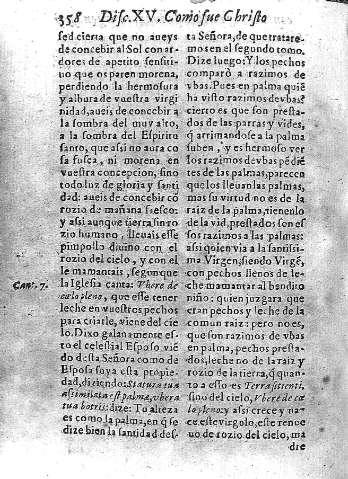 358 Disc. XV. Como fue Christo
sed cierta que no aueys
de concebir al Sol con ar-
dores de apetito sensiti-
uo que os paren morena,
perdiendo la hermosura
y albura de vuestra virgi
nidad, aueis de concebir a
la sombra del muy alto,
a la sombra del Espiritu
santo, que assi no aura co
sa fusca, ni morena en
vuestra concepcion, sino
todo luz de gloria y santi
dad: aueis de concebir cō
rozio de mañana fresco:
y assi aunque tierra sin ro
zio humano, lleuais esse
pimpollo diuino con el
rozio del cielo, y con el
le mamantais, segun que
la Iglesia canta: Vbere de
Cant. 7.
cœlo pleno, que esse tener
leche en vuestros pechos
para criarle, viene del cie
lo. Dixo galanamente es-
to el celestial Esposo viē
do desta Señora como de
Esposa suya esta propie-
dad, diziendo: Statura tua
assimilata est palmæ, vbera
tua botris: dize: Tu alteza
es como la palma, en q̄ se
dize bien la santidad des-
ta Señora, de que tratare-
mos en el segundo tomo.
Dize luego: Y los pechos
comparò a razimos de
vbas. Pues en palma quiē
ha visto razimos de vbas?
cierto es que son presta-
dos de las parras y vides,
q̄ arrimandose a la palma
suben, y es hermoso ver
los razimos de vbas pēdiē
tes de las palmas, parecen
que los lleuan las palmas,
mas su virtud no es de la
raiz de la palma, tienenlo
de la vid, prestados son es
sos razimos a las palmas:
assi quien via a la santissi-
ma Virgen, siendo Virgē,
con pechos llenos de le-
che mamantar al bendito
niño: quien juzgara que
eran pechos y leche de la
comun raiz: pero no es,
que son razimos de vbas
en palma, pechos presta-
dos, leche no de la raiz y
rozio de la tierra, q̄ quan-
to a esso es Terra sitienti,
sino del cielo, Vbere de cœ
lo pleno: y assi crece y na-
ce este virgolo, este reno
uo de rozio del cielo, ma
dre